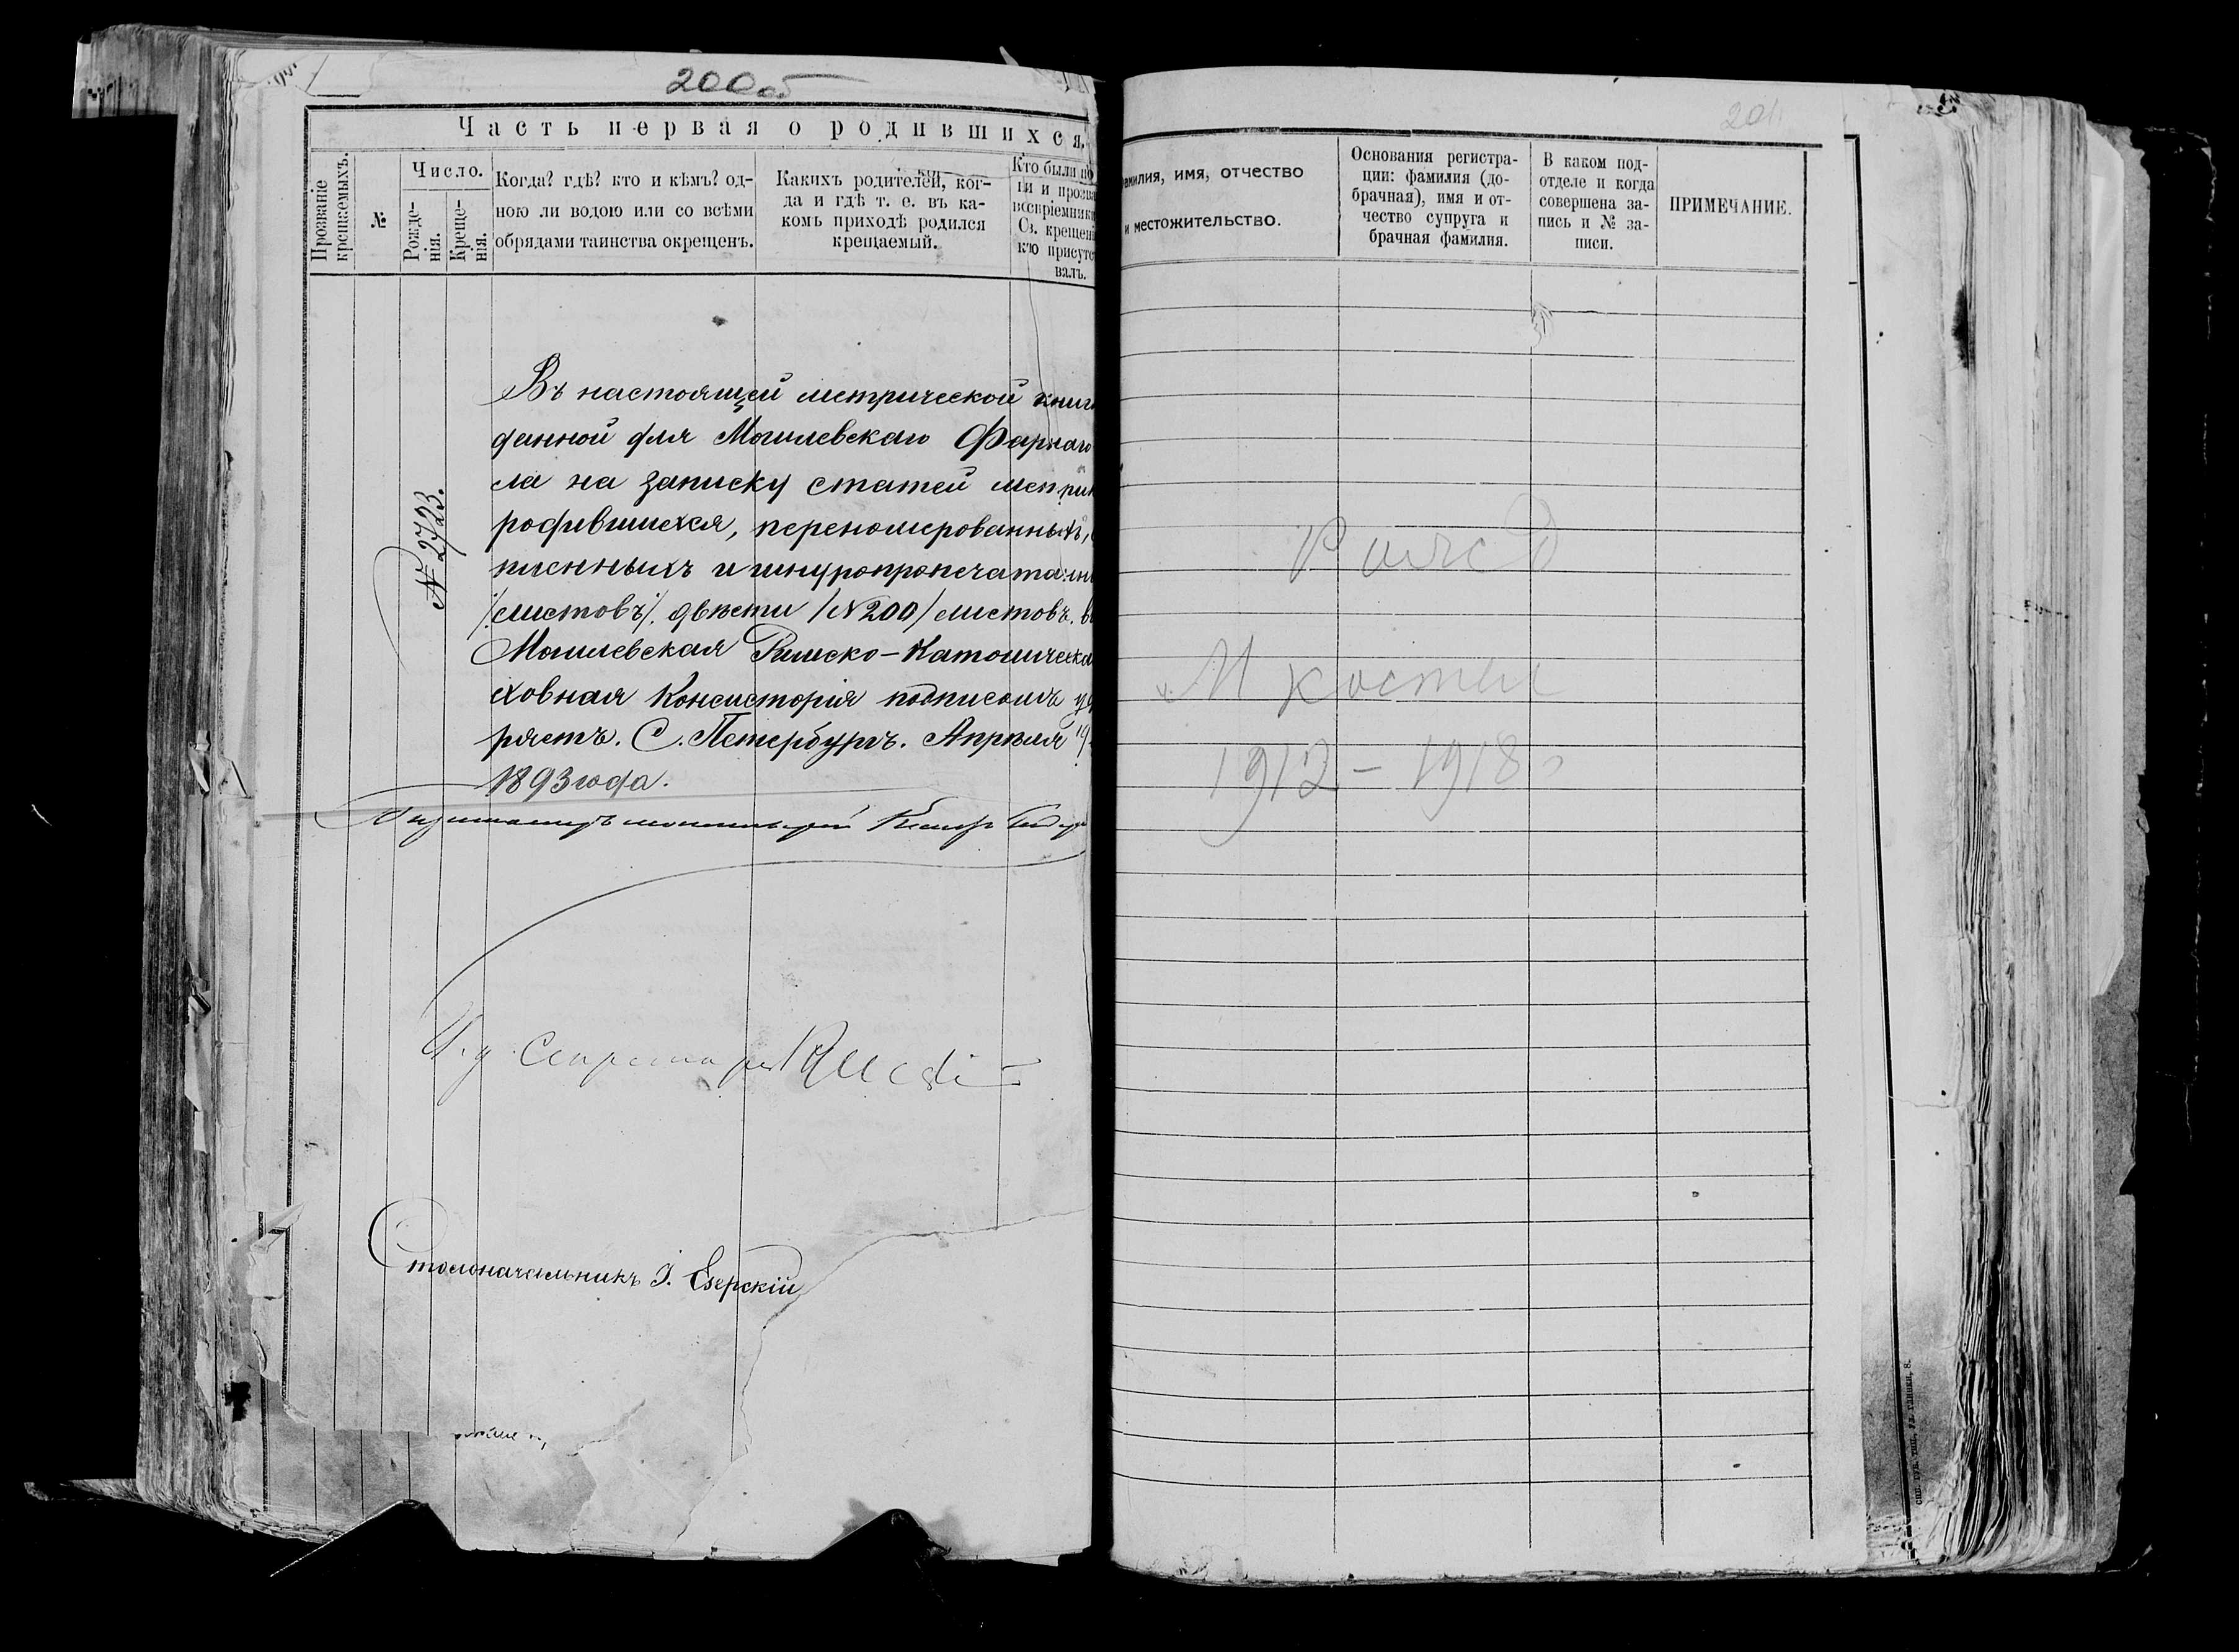 200об
Часть первая о родившихся,
Прозваніе
крещаемыхъ.
№
Число.
Рожде-
нія.
Креще-
нія.
Когда? гдѣ? кто и кѣмъ? од-
ною ли водою или со всѣми
обрядами таинства окрещенъ.
Какихъ родителей, ког-
да и гдѣ т. е. въ ка-
комъ приходѣ родился
крещаемый.
Кто были
и
воспріемники
Св. крещені
кто присутст
валъ.
№ 2723.
Въ настоящей метрической книг
данной для Могилевскаго Фарнаго
ла на записку статей метрик
родившихся, переномерованныхъ,
писнныхъ и шнуропропечатанн
/:листовъ:/ двѣсти /№ 200/ листовъ. въ
Могилевская Римско-Католическа
ховная Консисторія подписомъ уд
ряетъ. С. Петербургъ. Апрѣля 19
1893 года.
И. д. Секретаря
Столоначальникъ І. Езерскій
201
фамилия, имя, отчество
и местожительство.
Основания регистра-
ции: фамилия (до-
брачная), имя и от-
чество супруга и
брачная фамилия.
В каком под-
отделе и когда
совершена за-
пись и № за-
писи.
ПРИМЕЧАНИЕ.
М костел
1912 – 1918